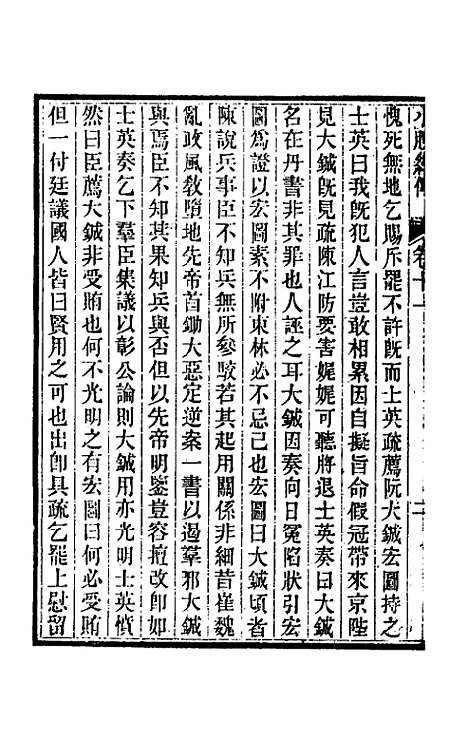 小腆紀傳
卷十一
愧死無地乞賜斥罷不許旣而士英疏薦阮大鋮宏圖持之
士英曰我旣犯人言豈敢相累因自擬旨命假冠帶來京陛
見大鋮旣見疏陳江防要害娓娓可聽將退士英奏曰大鋮
名在丹書非其罪也人誣之耳大鋮因奏向日冤陷狀引宏
圖爲證以宏圖素不附東林必不忌己也宏圖曰大鋮頃者
陳說兵事臣不知兵無所參駮若其起用關係非細昔崔魏
亂政風敎墮地先帝首鋤大惡定逆案一書以遏羣邪大鋮
與焉臣不知其果知兵與否但以先帝明鑒豈容擅改卽如
士英奏乞下羣臣集議以彰公論則大鋮用亦光明士英憤
然曰臣薦大鋮非受賄也何不光明之有宏圖曰何必受賄
但一付廷議國人皆曰賢用之可也出卽具疏乞罷上慰留